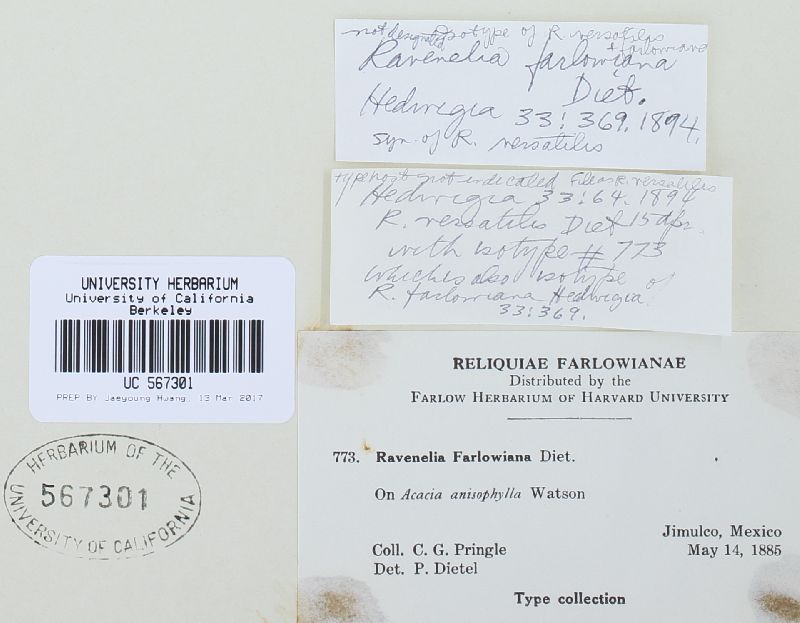 not designated isotype of R. versatilis
+ farlowiana
Ravenelia farlowiana
Diet.
Hedwigia 33: 369. 1894.
syn. of R. versatilis
type host not indicated Filed R. versatilis
Hedwigia 33: 64. 1894
R. versatilis Diet 15 Apr.
with isotype # 773
which is also isotype of
R. farlowiana Hedwigia
33: 369.
UNIVERSITY HERBARIUM
University of California
Berkeley
UC 567301
PREP BY Jaeyoung Huang, 13 Mar 2017
HERBARIUM OF THE
567301
UNIVERSITY OF CALIFORNIA
RELIQUIAE FARLOWIANAE
Distributed by the
FARLOW HERBARIUM OF HARVARD UNIVERSITY
773. Ravenelia Farlowiana Diet.
On Acacia anisophylla Watson
Jimulco, Mexico
Coll. C. G. Pringle May 14, 1885
Det. P. Dietel
Type collection